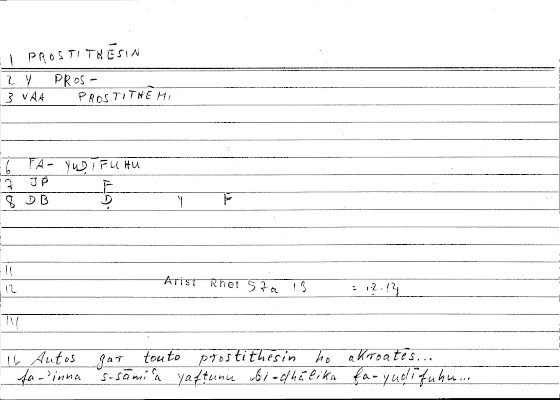 1 PROSTITHĒSIN
2 Y PROS-
3 VAA PROSTITHĒMI
6 FA- YUḌĪFUHU
7 JP F
8 DB Ḍ Y F
11
12 Arist Rhet 57a 19 = 12.14
14
Autos gar touto prostithēsin ho akroatēs...
fa-'inna s-sāmi'a yaftunu bi-dhālika fa-yuḍīfuhu...